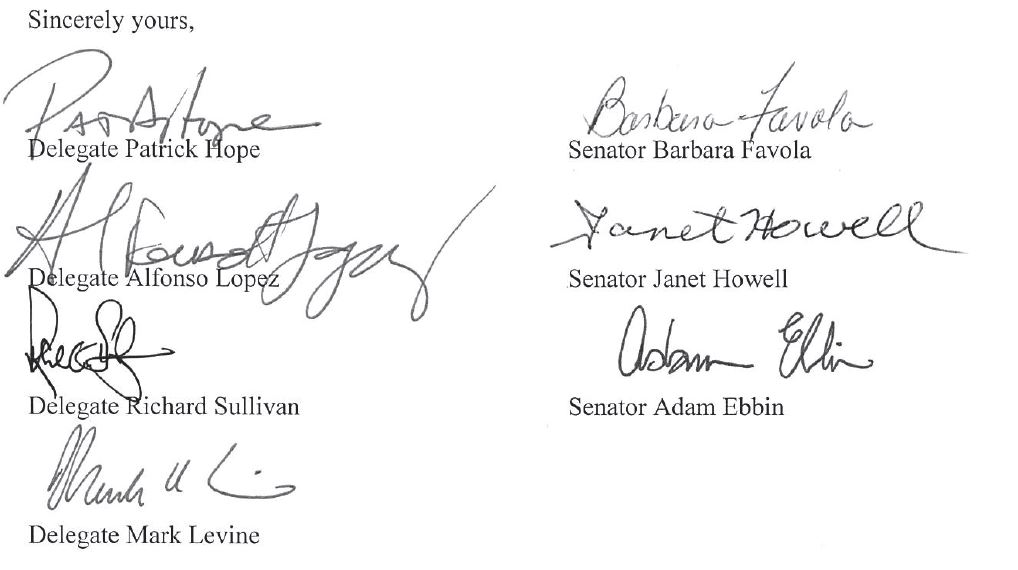 Sincerely yours,
Pat A Hope
Delegate Patrick Hope
Barbara Favola
Senator Barbara Favola
Alfonso H Lopez
Delegate Alfonso Lopez
Janet Howell
Senator Janet Howell
Delegate Richard Sullivan
Adam Ebbin
Senator Adam Ebbin
Mark
Delegate Mark Levine